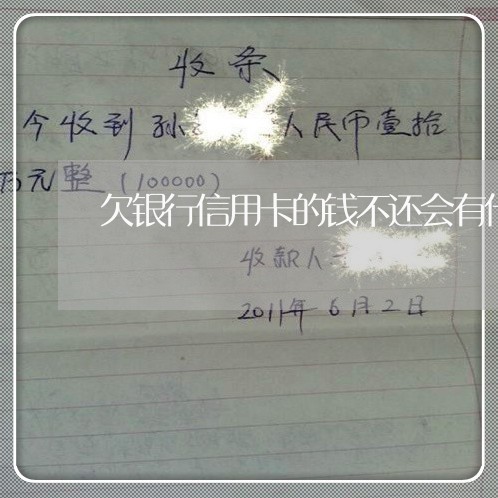 收条
今收到孙 人民币壹拾
万元整(100000)
欠银行信用卡的钱不还会有
收款人
2011年6月2日